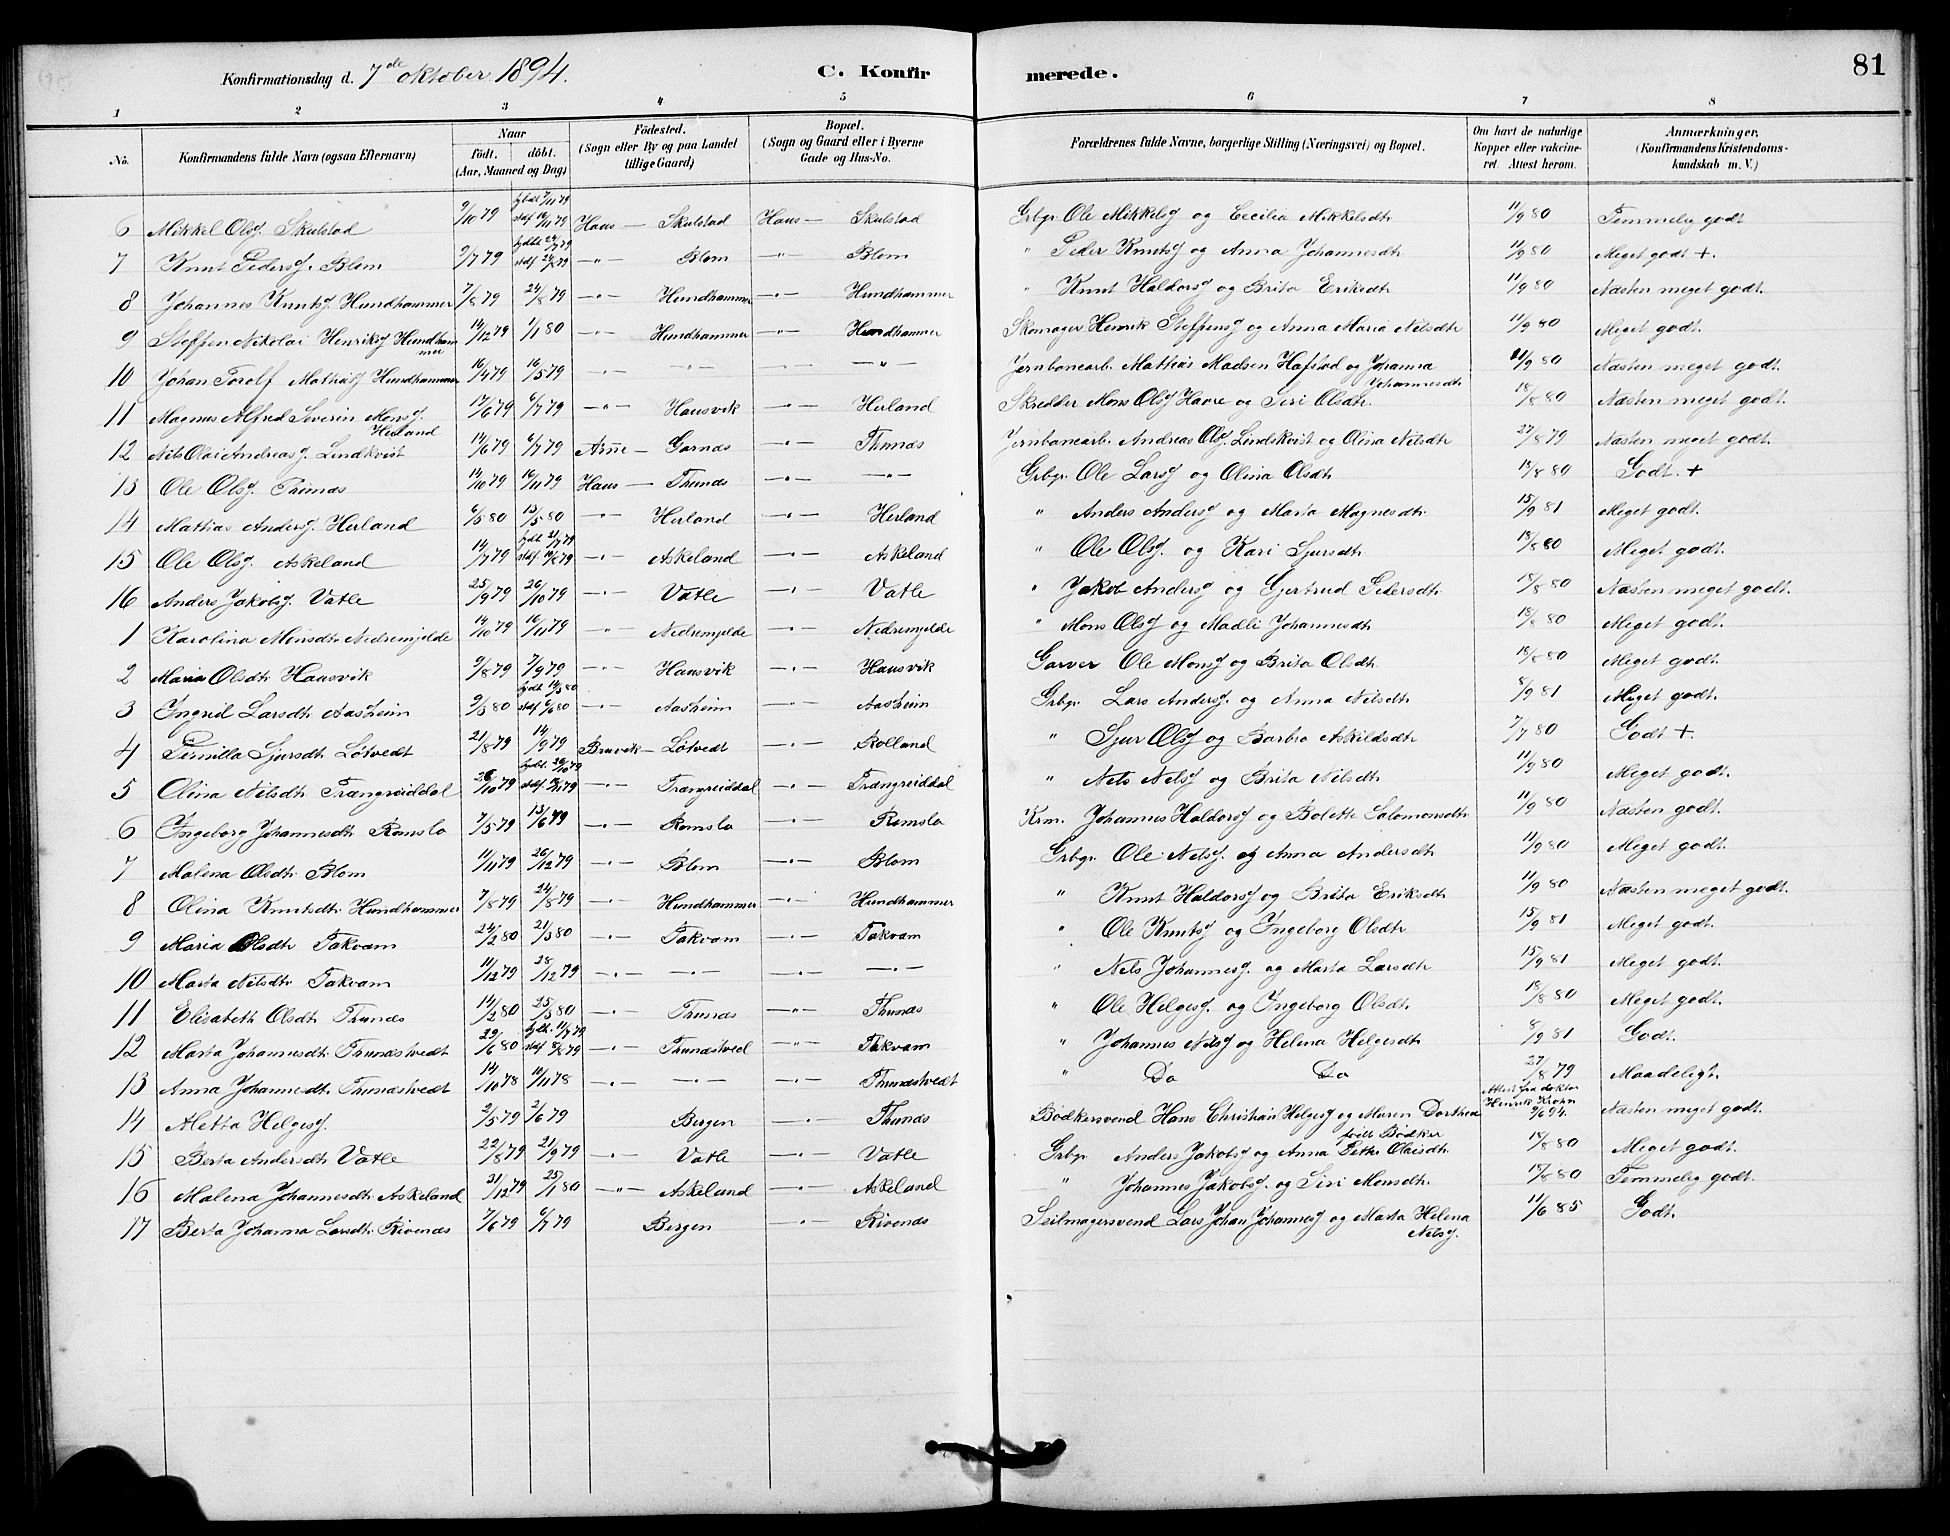 Konfirmationsdag d. 7de oktober 1894. C. Konfirmerede. 81
1 2 3 4 5 6 7 8
No. Konfirmandens fulde Navn (ogsaa Efternavn) Naar födt. döbt. (Aar, Maaned og Dag) Födested. (Sogn eller By og paa Landet tillige Gaard) Bopæl. (Sogn og Gaard eller i Byerne Gade og Hus-No. Forældrenes fulde Navne, borgerlige Stilling (Næringsvei) og Bopæl. Om havt de naturlige Kopper eller vakcineret. Attest herom. Anmærkninger. (Konfirmandens Kristendomskundskab m. V.)
6 Mikkel Olsj Skulstad 9/10 79 hjdbt 7/11 79 stdf 16/11 79 Haus — Skulstad Haus — Skulstad Grbgr. Ole Mikkelsj og Cecilia Mikkelsdtr 11/9 80 Temmelig godt
7 Knut Pedersj. Blom 9/7 79 hjdbt 24/7 79 stdf 24/8 79 —"— Blom —"— Blom " Peder Knutsj og Anna Johannesdtr. 11/9 80 Meget godt +.
8 Johannes Knutsj Hundhammer 7/8 79 24/8 79 —"— Hundhammer —"— Hundhammer " Knut Haldorsj og Brita Eriksdtr 11/9 80 Næsten meget godt.
9 Steffen Nikolai Henriksj Hundhammer 14/12 79 1/1 80 —"— Hundhammer —"— Hundhammer Skomager Henrik Steffensj og Anna Maria Nilsdtr 11/9 80 Meget godt.
10 Johan Torolf Mathiasj Hundhammer 16/4 79 16/5 79 —"— —"— —"— Jernbanearb. Mathias Madsen Hafstad og Johanna Johannesdtr 11/9 80 Næsten meget godt.
11 Magnus Alfred Severin Monsj. Herland 17/6 79 6/7 79 —"— Hausvik —"— Herland Skredder Mons Olsj Havre og Siri Olsdtr. 18/8 80 Næsten meget godt.
12 Nils Olai Andreasj Lindkvist 14/6 79 6/7 79 Arne — Garnæs —"— Thunæs Jernbanearb. Andreas Olsj. Lindkvist og Olina Nilsdtr 27/8 79 Næsten meget godt.
13 Ole Olsj. Thunæs 14/10 79 16/11 79 Haus — Thunæs —"— —"— Grbgr. Ole Larsj og Olina Olsdtr 18/8 80 Godt. +
14 Mathias Andersj. Herland 6/5 80 13/5 80 —"— Herland —"— Herland " Anders Andersj og Maria Magnesdtr. 15/9 81 Meget godt.
15 Ole Olsj Askeland 14/7 79 hjdbt 21/7 79 stdf 10/8 79 —"— Askeland —"— Askeland " Ole Olsj. og Kari Sjursdtr 18/8 80 Meget godt.
16 Anders Jakobsj. Vatle 25/9 79 26/10 79 —"— Vatle —"— Vatle " Jakob Andersj og Gjertrud Pedersdtr. 18/8 80 Næsten meget godt.
1 Karolina Monsdtr Nedremjelde 14/10 79 16/11 79 —"— Nedremjelde —"— Nedremjelde " Mons Olsj og Madli Johannesdtr. 18/8 80 Meget godt.
2 Maria Olsdtr Hausvik 9/8 79 7/9 79 —"— Hausvik —"— Hausvik Garver Ole Monsj og Brita Olsdtr. 18/8 80 Meget godt.
3 Ingrid Larsdtr Aasheim 9/3 80 hjdbt 14/3 80 stdf 6/6 80 —"— Aasheim —"— Aasheim Grbgr. Lars Andersj. og Anna Nilsdtr 8/9 81 Meget godt.
4 Pernilla Sjursdtr Løtvedt 21/8 79 14/9 79 Bruvik — Løtvedt —"— Rolland " Sjur Olsj og Barbro Askildsdtr 7/7 80 Godt +.
5 Olina Nilsdtr Trængreiddal 26/10 79 hjdbt. 26/10 79 —"— Trængreiddal —"— Trængreiddal " Nels Nelsj og Brita Nilsdtr 11/9 80 Meget godt.
6 Ingeborg Johannesdtr Romslo 7/5 79 13/6 79 —"— Romslo —"— Romslo Krm. Johannes Haldorsj og Bolette Salomonsdtr. 11/9 80 Næsten godt.
7 Malena Olsdtr Blom 11/11 79 26/12 79 —"— Blom —"— Blom Grbgr. Ole Nelsj. og Anna Andersdtr 11/9 80 Meget godt.
8 Olina Knutsdtr. Hundhammer 7/8 79 24/8 79 —"— Hundhammer —"— Hundhammer " Knut Haldorsj og Brita Eriksdtr 11/9 80 Næsten meget godt.
9 Maria Olsdtr Takvam 24/2 80 21/3 80 —"— Takvam —"— Takvam " Ole Knutsj og Ingeborg Olsdtr 15/9 81 Meget godt.
10 Marta Nilsdtr. Takvam 11/12 79 28/12 79 —"— —"— —"— —"— " Nels Johannesj. og Marta Larsdtr 15/9 81 Meget godt.
11 Elisabeth Olsdtr Thunæs 14/2 80 25/3 80 —"— Thunæs —"— Thunæs " Ole Helgesj. og Ingeborg Olsdtr 18/8 80 Meget godt.
12 Marta Johannesdtr. Thunæstvedt 29/6 80 —"— Thunæstved —"— Takvam " Johannes Nelsj og Helena Helgesdtr 8/9 81 Godt.
13 Anna Johannesdtr Thunæstvedt 14/10 78 10/11 78 —"— —"— —"— Thunæstvedt " Do Do 27/8 79 Maadeligt.
14 Metta Helgesj. 2/5 79 2/6 79 Bergen —"— Thunæs Bødkersvend Hans Christian Helgesj og Maren Dorthea født Bødker Attest fra doktor Henrik Krohn 9/6 94. Næsten meget godt.
15 Berta Andersdtr Vatle 22/8 79 21/9 79 —"— Vatle —"— Vatle Grbgr Anders Jakobsj og Anna Petter Olaisdtr 18/8 80 Meget godt.
16 Malena Johannesdtr. Askeland 31/12 79 25/1 80 —"— Askeland —"— Askeland " Johannes Jakobsj. og Siri Monsdtr. 18/8 80 Temmelig godt.
17 Berta Johanna Larsdtr. Rivenæs 7/6 79 6/7 79 Bergen —"— Rivenæs Seilmagersvend Lars Johan Johannesj og Marta Helena Nelsj. 11/6 85 Godt.